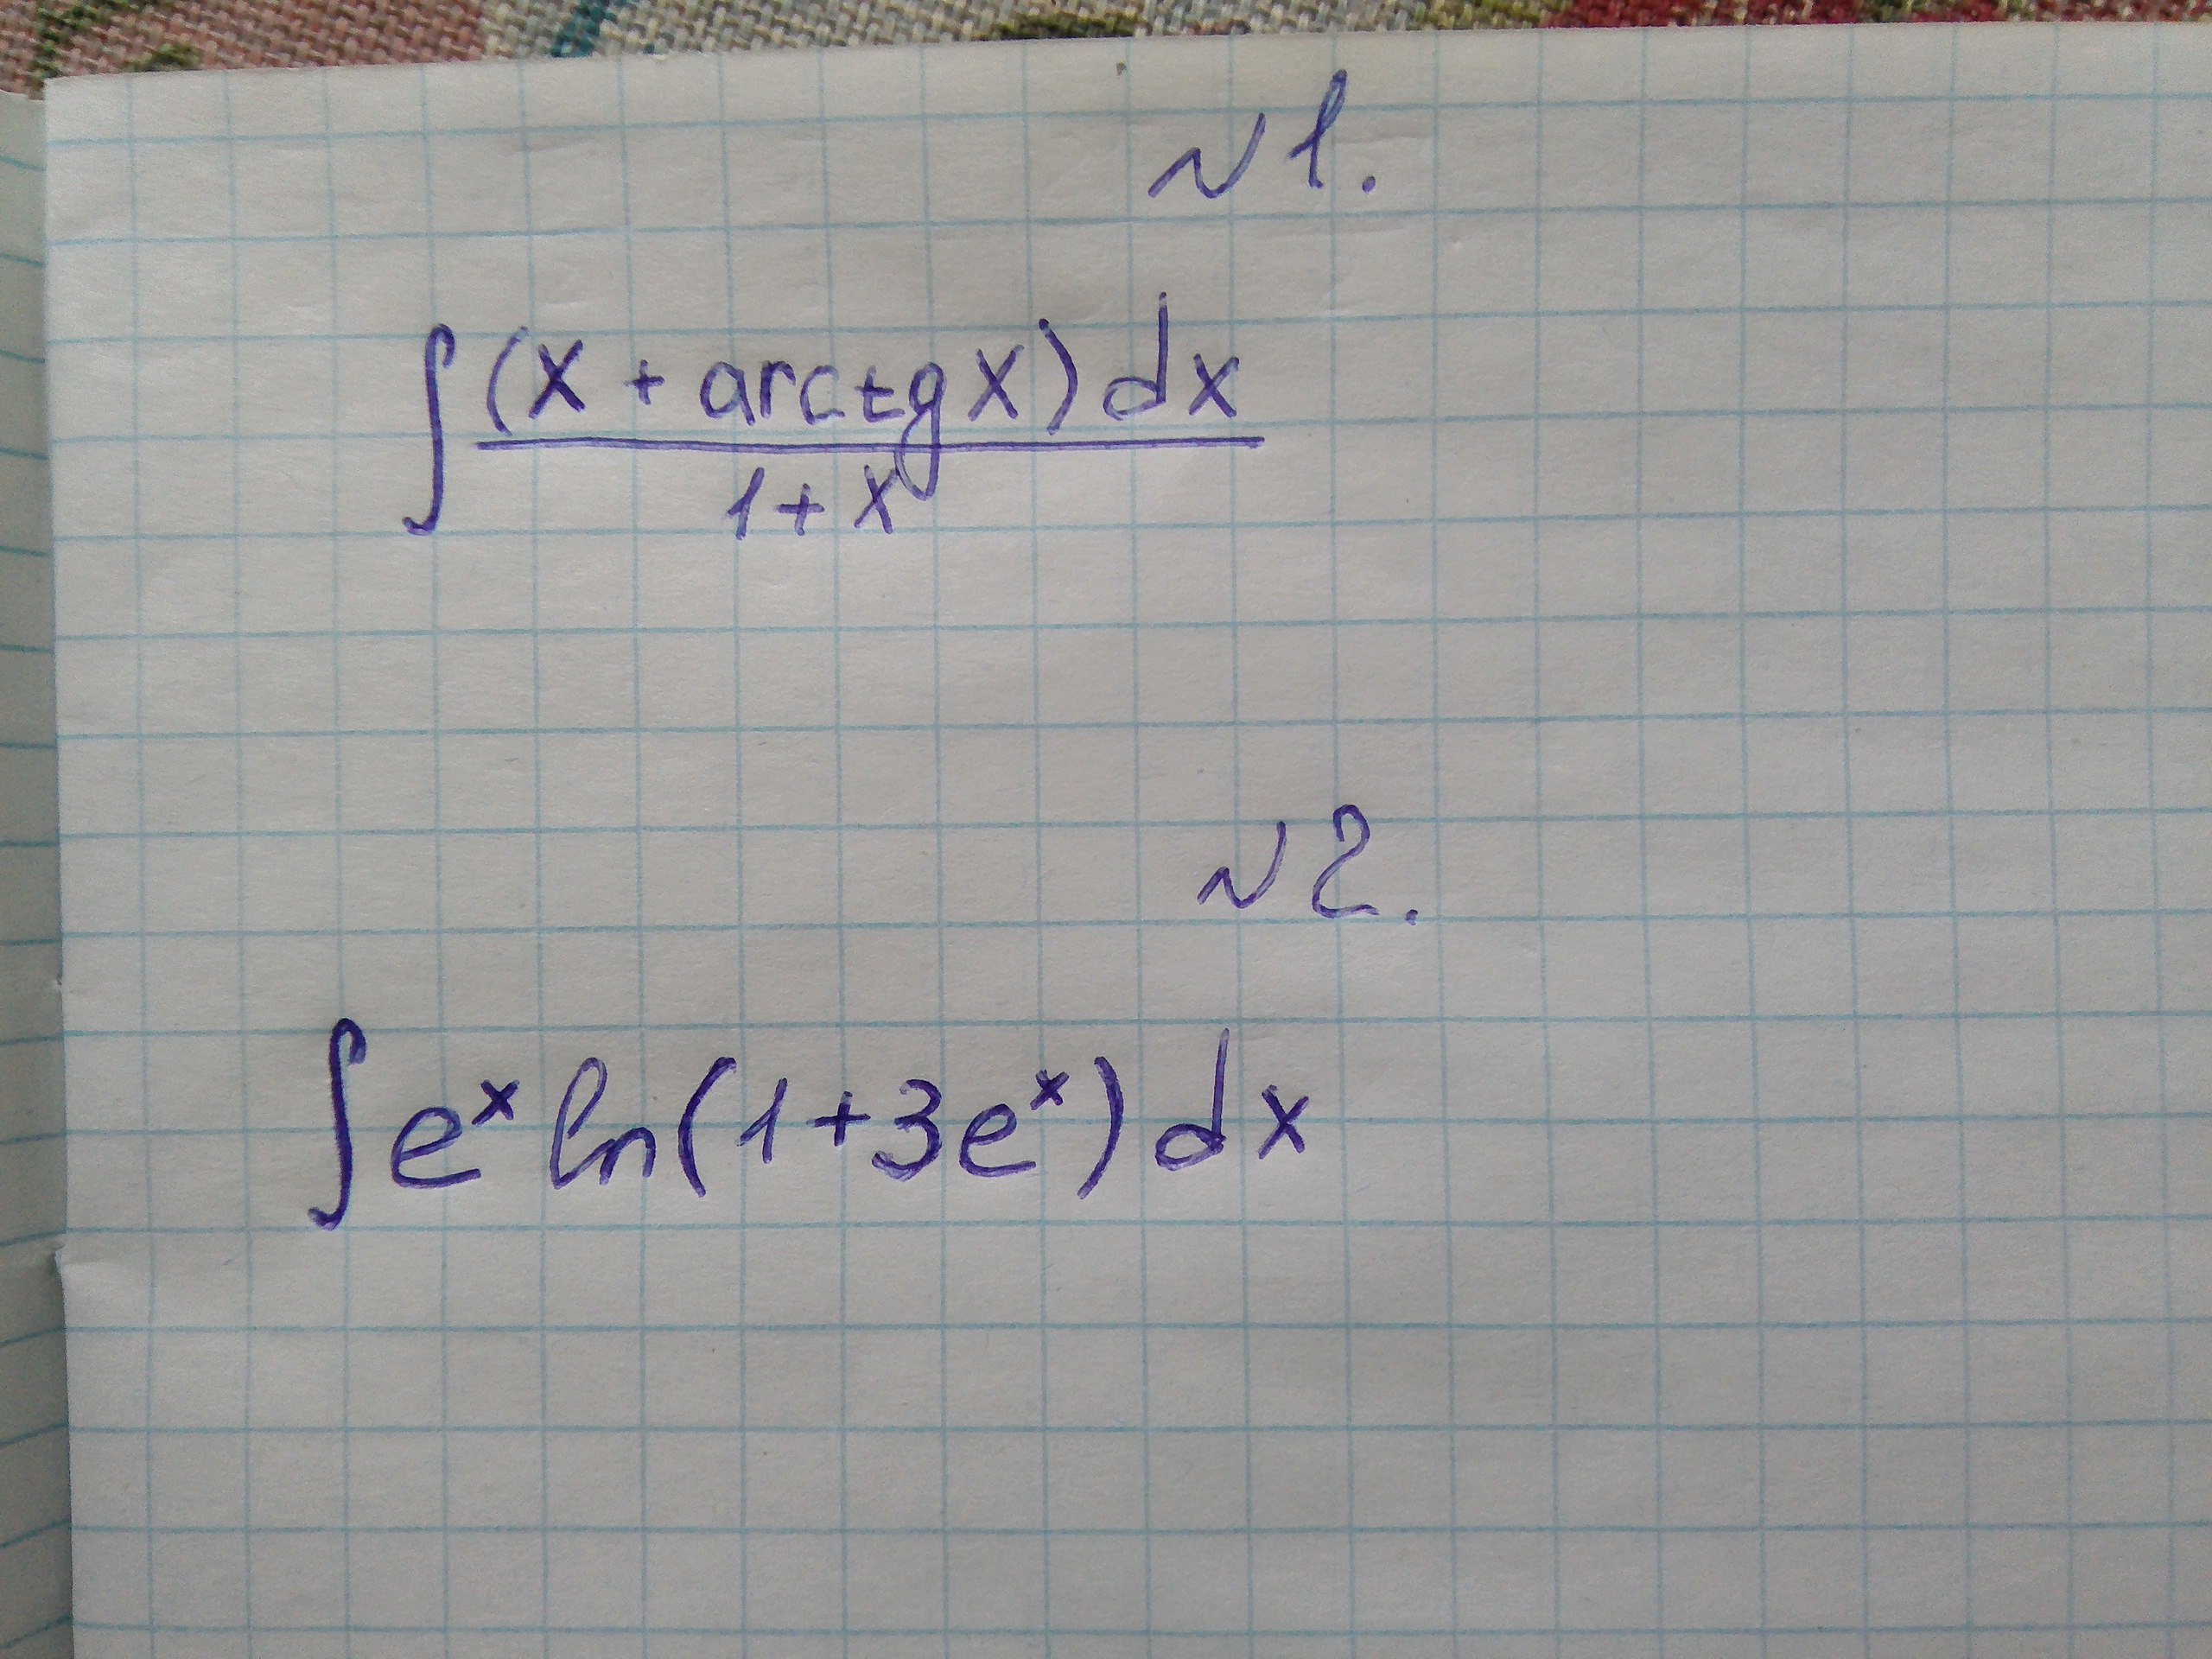 N1.
∫ (x + arctg x) dx / 1 + x
N2.
∫ eˣ ln(1+3eˣ) dx